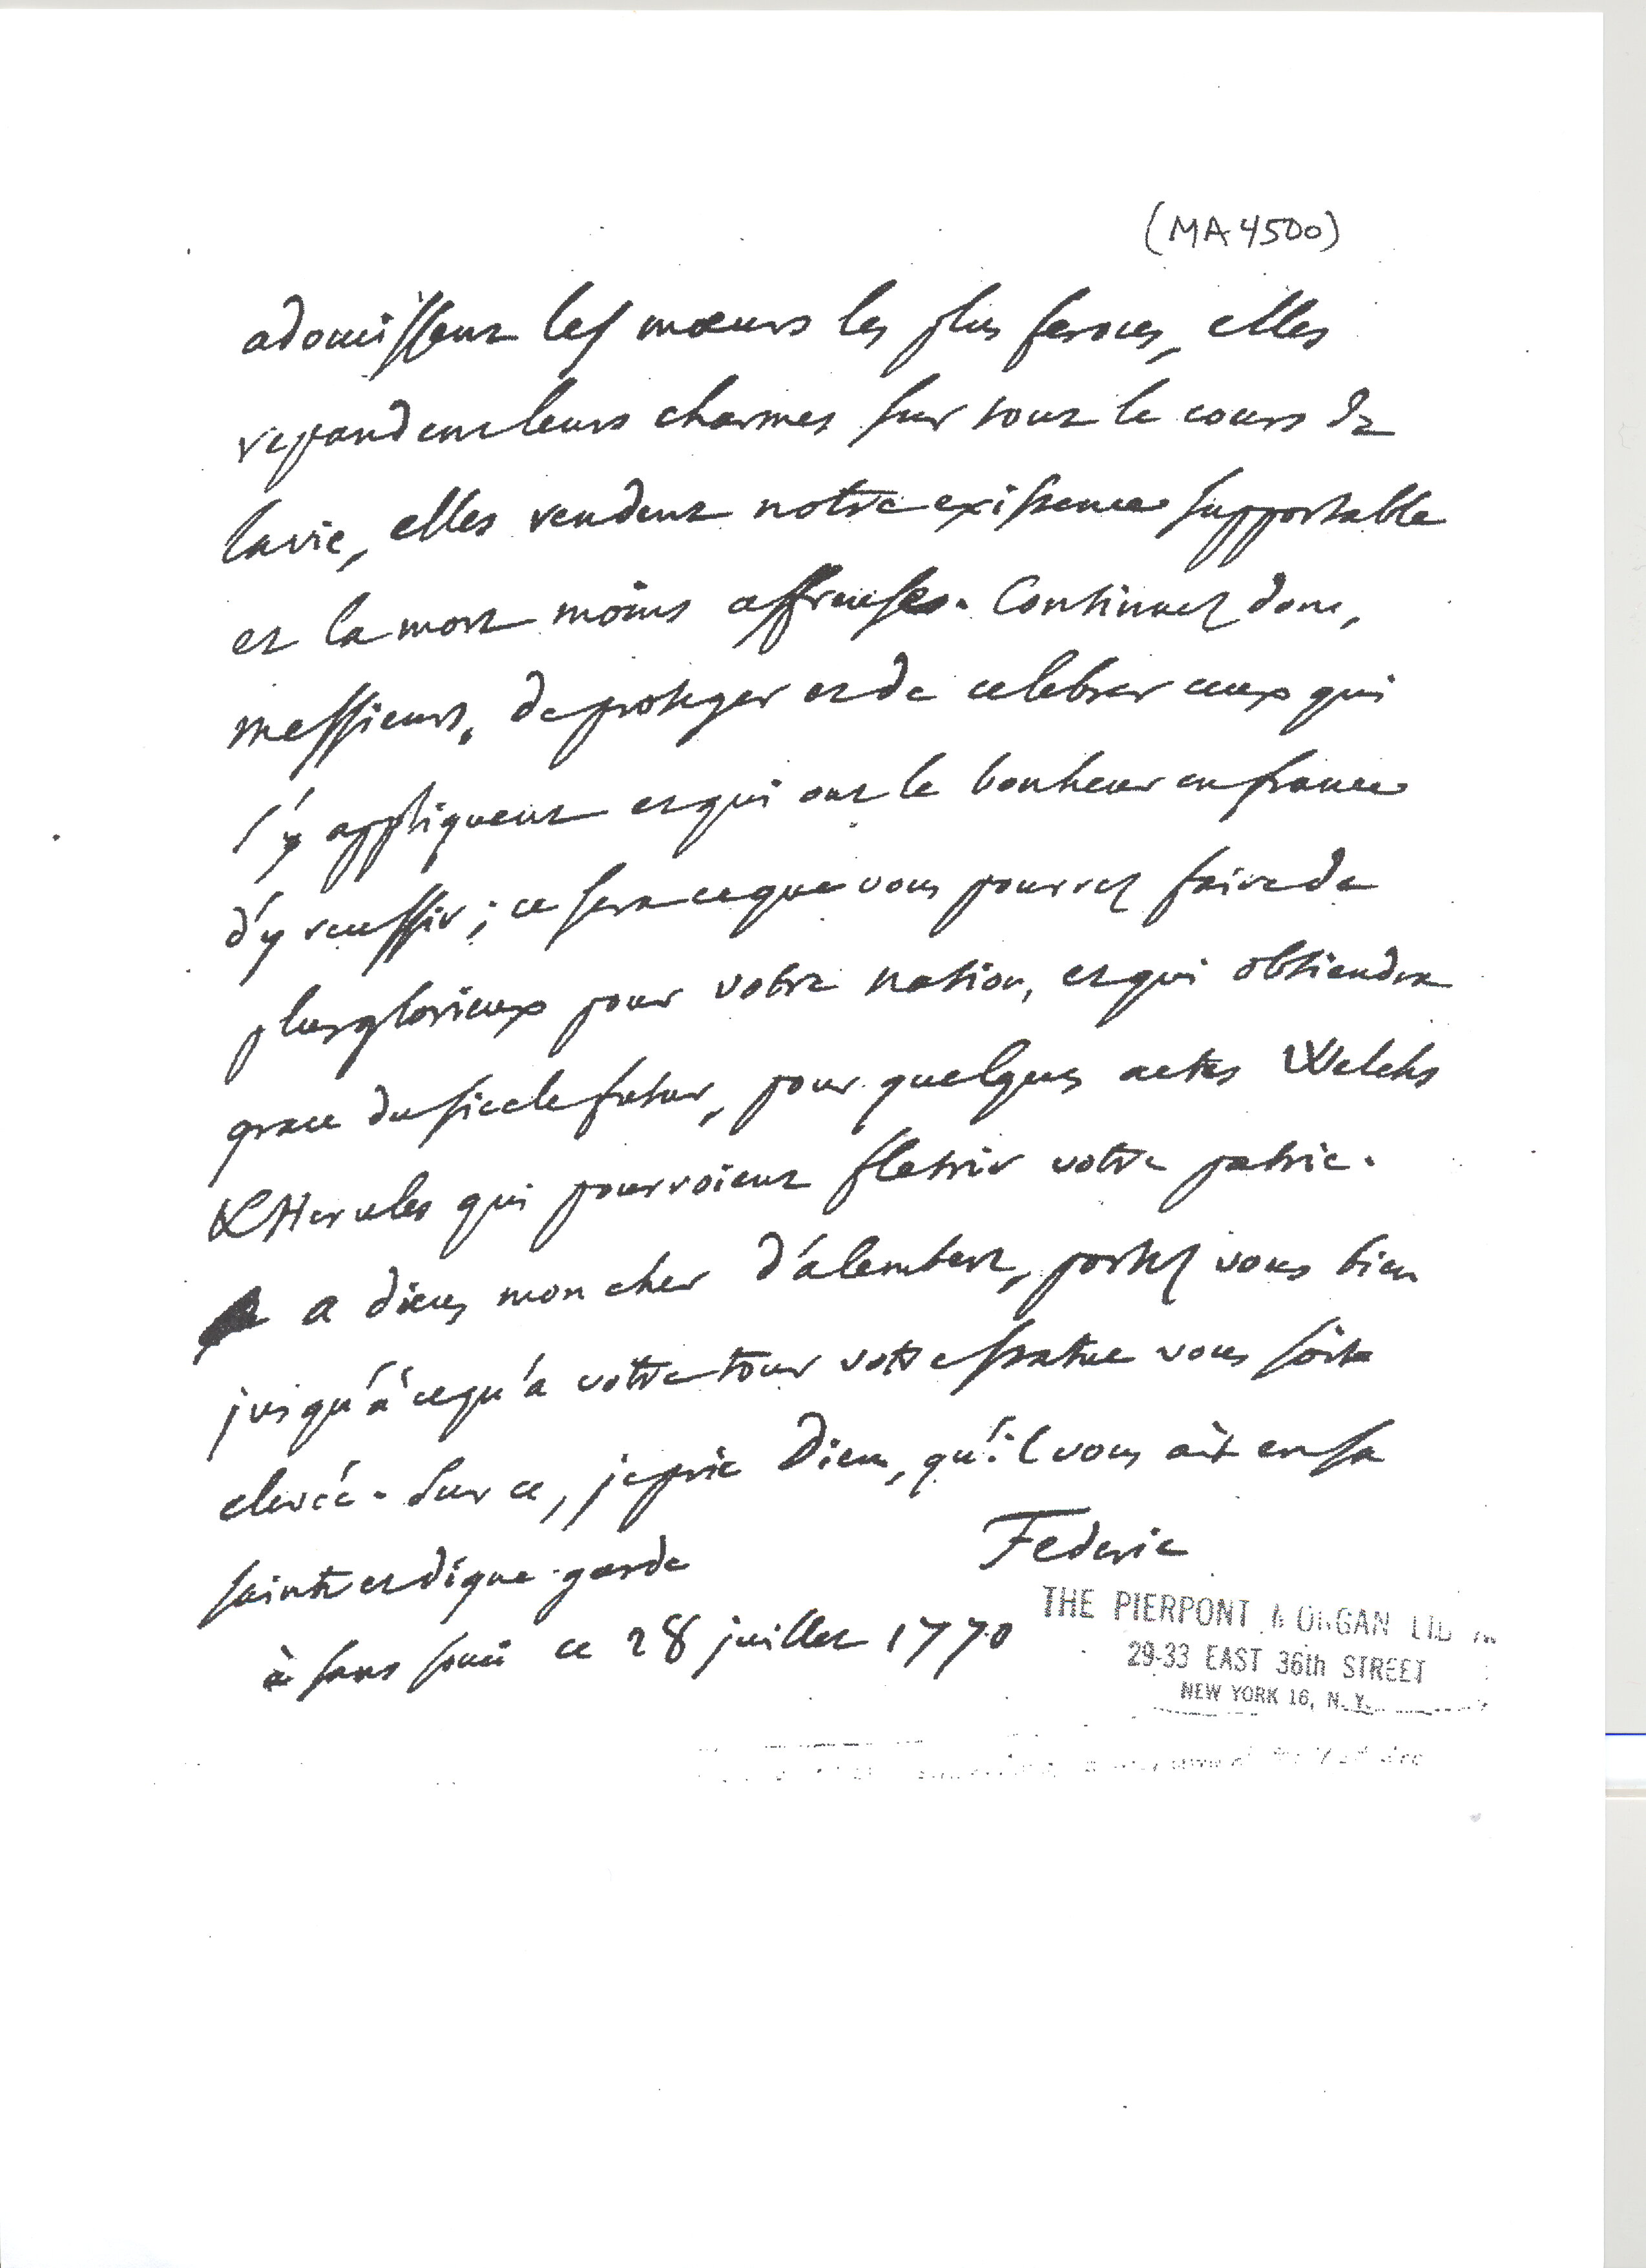 (MA 4500)
adoucissent les mœurs les plus feroces, elles
repandent leurs charmes sur tout le cours de
la vie, elles rendent notre existence supportable
et la mort moins affreuse. Continuez donc,
messieurs, de proteger et de celebrer ceux qui
s'y appliquent et qui ont le bonheur en france
d'y reussir; ce sera ce que vous pourrez faire de
plus glorieux pour votre nation, et qui obtiendra
grace du siecle futur, pour quelques actes Welchs
& Herules qui pourroient fletrir votre patrie.
a dieu mon cher d'alembert, portez vous bien
jusqu'à ce qu'a votre tour votre statue vous soit
elevée. Sur ce, je prie Dieu, qu'il vous ait en sa
sainte et digne garde
Federic
à sans souci ce 28 juillet 1770
THE PIERPONT MORGAN LIB
29-33 EAST 36th STREET
NEW YORK 16, N. Y.